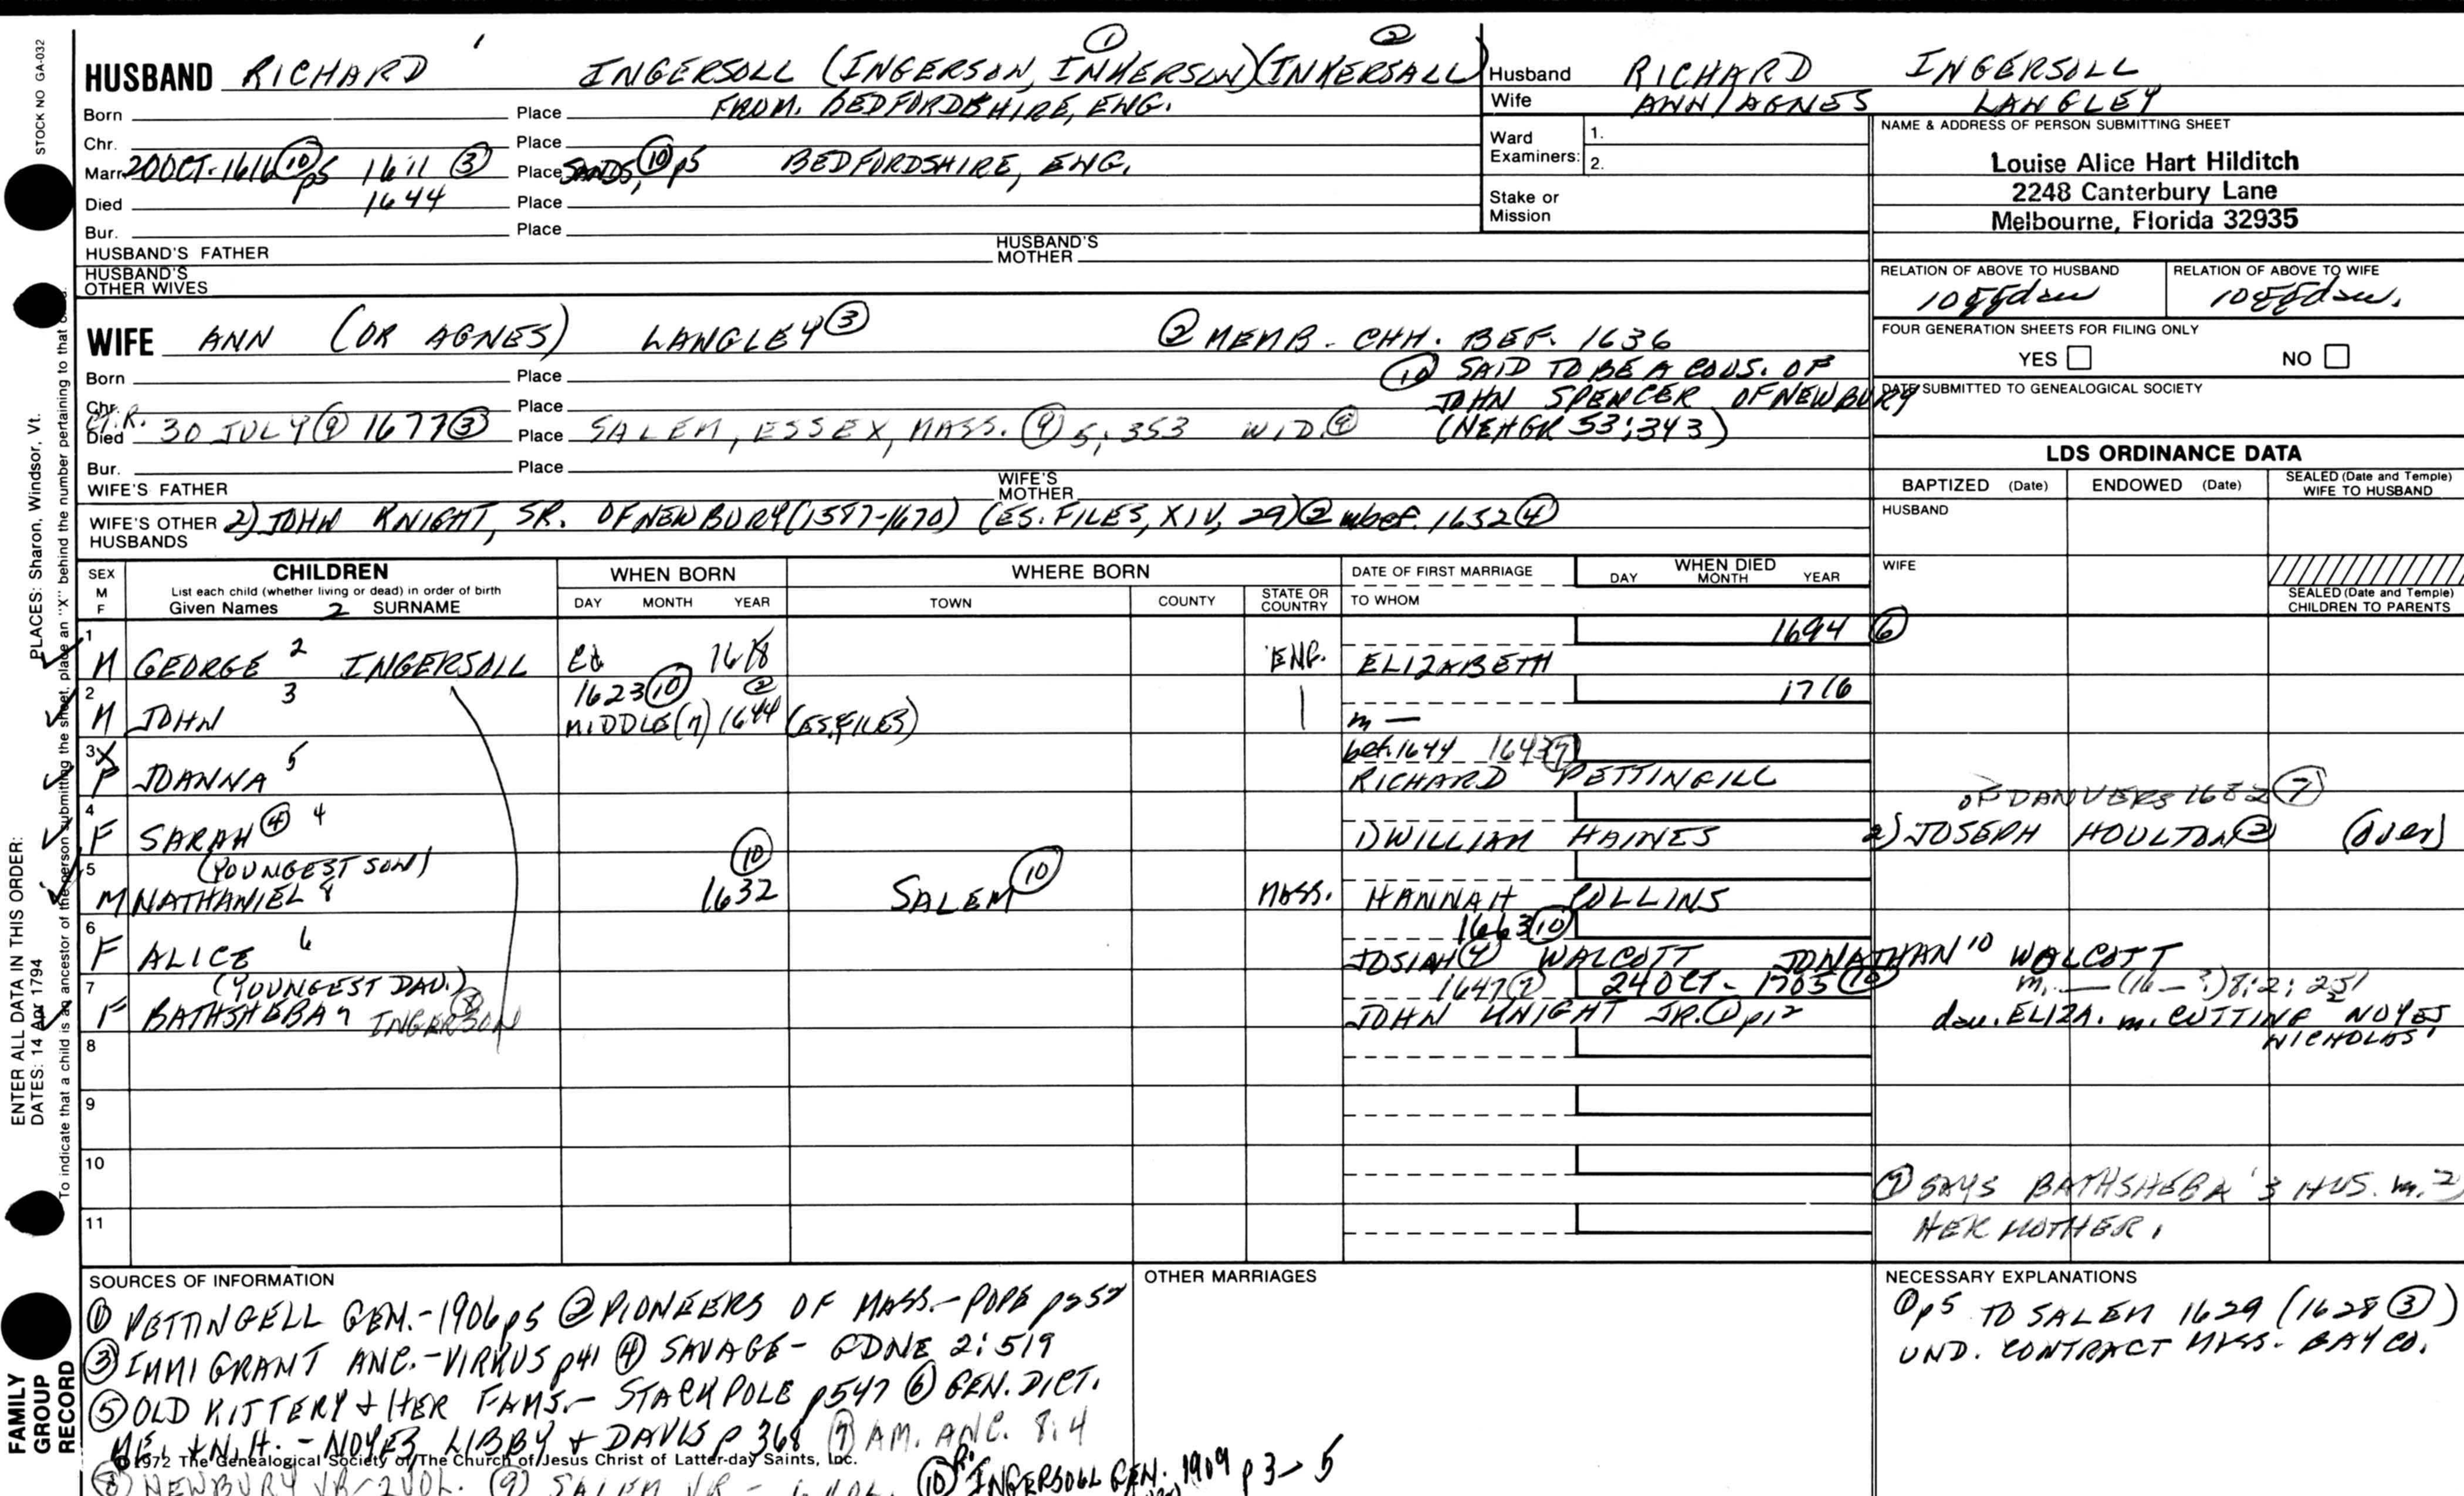 STOCK NO GA-032
① ②
HUSBAND RICHARD ' INGERSOLL (INGERSON, INKERSON)(INKERSALL)
Born Place FROM. BEDFORDSHIRE, ENG.
Chr. Place
Marr. 20 OCT. 1616 ⑩ p5 1611 ③ Place SANDS, ⑩ p5 BEDFORDSHIRE, ENG.
Died 1644 Place
Bur. Place
HUSBAND'S FATHER HUSBAND'S MOTHER
HUSBAND'S OTHER WIVES
Husband RICHARD INGERSOLL
Wife ANN/AGNES LANGLEY
Ward Examiners: 1.
2.
Stake or Mission
NAME & ADDRESS OF PERSON SUBMITTING SHEET
Louise Alice Hart Hilditch
2248 Canterbury Lane
Melbourne, Florida 32935
RELATION OF ABOVE TO HUSBAND RELATION OF ABOVE TO WIFE
10ggdau 10ggdau.
FOUR GENERATION SHEETS FOR FILING ONLY
YES NO
DATE SUBMITTED TO GENEALOGICAL SOCIETY
WIFE ANN (OR AGNES) LANGLEY ③ ② MEMB. CHH. BEF. 1636
Born Place ⑩ SAID TO BE A COUS. OF
Chr. Place JOHN SPENCER OF NEWBURY
Ct.R. Died 30 JULY ⑨ 1677 ③ Place SALEM, ESSEX, MASS. ⑨ 5:353 WID ⑨ (NEHGR 53:343)
Bur. Place
WIFE'S FATHER WIFE'S MOTHER
WIFE'S OTHER HUSBANDS 2) JOHN KNIGHT, SR. OF NEWBURY (1587-1670) (ES. FILES, XIV, 29) ② m bef. 1652 ④
LDS ORDINANCE DATA
BAPTIZED (Date) ENDOWED (Date) SEALED (Date and Temple) WIFE TO HUSBAND
HUSBAND
WIFE
SEALED (Date and Temple) CHILDREN TO PARENTS
SEX M F
CHILDREN
List each child (whether living or dead) in order of birth
Given Names 2 SURNAME
WHEN BORN
DAY MONTH YEAR
WHERE BORN
TOWN COUNTY STATE OR COUNTRY
DATE OF FIRST MARRIAGE
TO WHOM
WHEN DIED
DAY MONTH YEAR
1 1694 ⑥
M GEORGE 2 INGERSOLL 1618 ENG. ELIZABETH
2 3 1623 ⑩ ② 1716
M JOHN MIDDLE (7) 1644 (ES. FILES) m —
3 X 5 bef. 1644 1643 ⑦
F JOANNA RICHARD PETTINGILL
4 OF DANVERS 1682 ⑦
F SARAH ④ 4 1) WILLIAM HAINES 2) JOSEPH HOULTON ② (over)
5 (YOUNGEST SON) ⑩
M NATHANIEL 8 1632 SALEM ⑩ MASS. HANNAH COLLINS
6 1663 ⑩
F ALICE 6 JOSIAH ④ WALCOTT JONATHAN 10 WALCOTT
7 (YOUNGEST DAU.) ⑧ 1647 ⑦ 24 OCT. 1705 ⑩
F BATHSHEBA 7 INGERSON JOHN KNIGHT JR. ① p12 dau. ELIZA. m. CUTTING NOYES,
NICHOLAS'
8
9
10
11
⑦ SAYS BATHSHEBA'S HUS. m. 2)
HER MOTHER.
SOURCES OF INFORMATION
① PETTINGELL GEN.-1906 p5 ② PIONEERS OF MASS.-POPE p252
③ IMMIGRANT ANC.-VIRKUS p41 ④ SAVAGE- GDNE 2:519
⑤ OLD KITTERY & HER FAMS.- STACKPOLE p547 ⑥ GEN. DICT.
ME. & N.H. - NOYES LIBBY & DAVIS p 368 ⑦ AM. ANC. 8:4
©1972 The Genealogical Society of The Church of Jesus Christ of Latter-day Saints, Inc.
⑧ NEWBURY VR-2 VOL. ⑨ SALEM VR - 6 VOL. ⑩ INGERSOLL GEN. 1909 p 3-5
OTHER MARRIAGES
NECESSARY EXPLANATIONS
① p5 TO SALEM 1629 (1628 ③)
UND. CONTRACT MASS. BAY CO.
ENTER ALL DATA IN THIS ORDER:
DATES: 14 Apr 1794 PLACES: Sharon, Windsor, Vt.
To indicate that a child is an ancestor of the person submitting the sheet, place an "X" behind the number pertaining to that
FAMILY
GROUP
RECORD